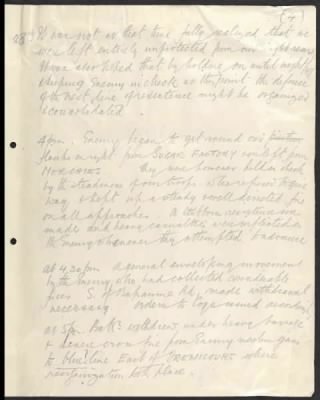 (7)
28th It was not at that time fully realized that we
were left entirely unprotected from our right rear.
It was also hoped that by holding on until night &
keeping Enemy in check at this point the defence
of the next line of resistance might be organized
& consolidated.
4pm. Enemy began to get round our
flanks on right from SUGAR FACTORY and left from
MORCHIES They were however held in check
by the steadiness of our troops who refused to give
way & kept up a steady well directed fire
on all approaches. A stubborn resistance was
made and heavy casualties were inflicted on
the Enemy whenever they attempted to advance
at 4.30pm a general enveloping movement
by the Enemy, who had collected considerable
forces S. of Bapaume Rd, made withdrawal
necessary orders to Coys issued accordingly.
at 5pm Battn withdrew, under heavy barrage
& dense cross fire from Enemy machine guns
to blue line East of where
reorganization took place.